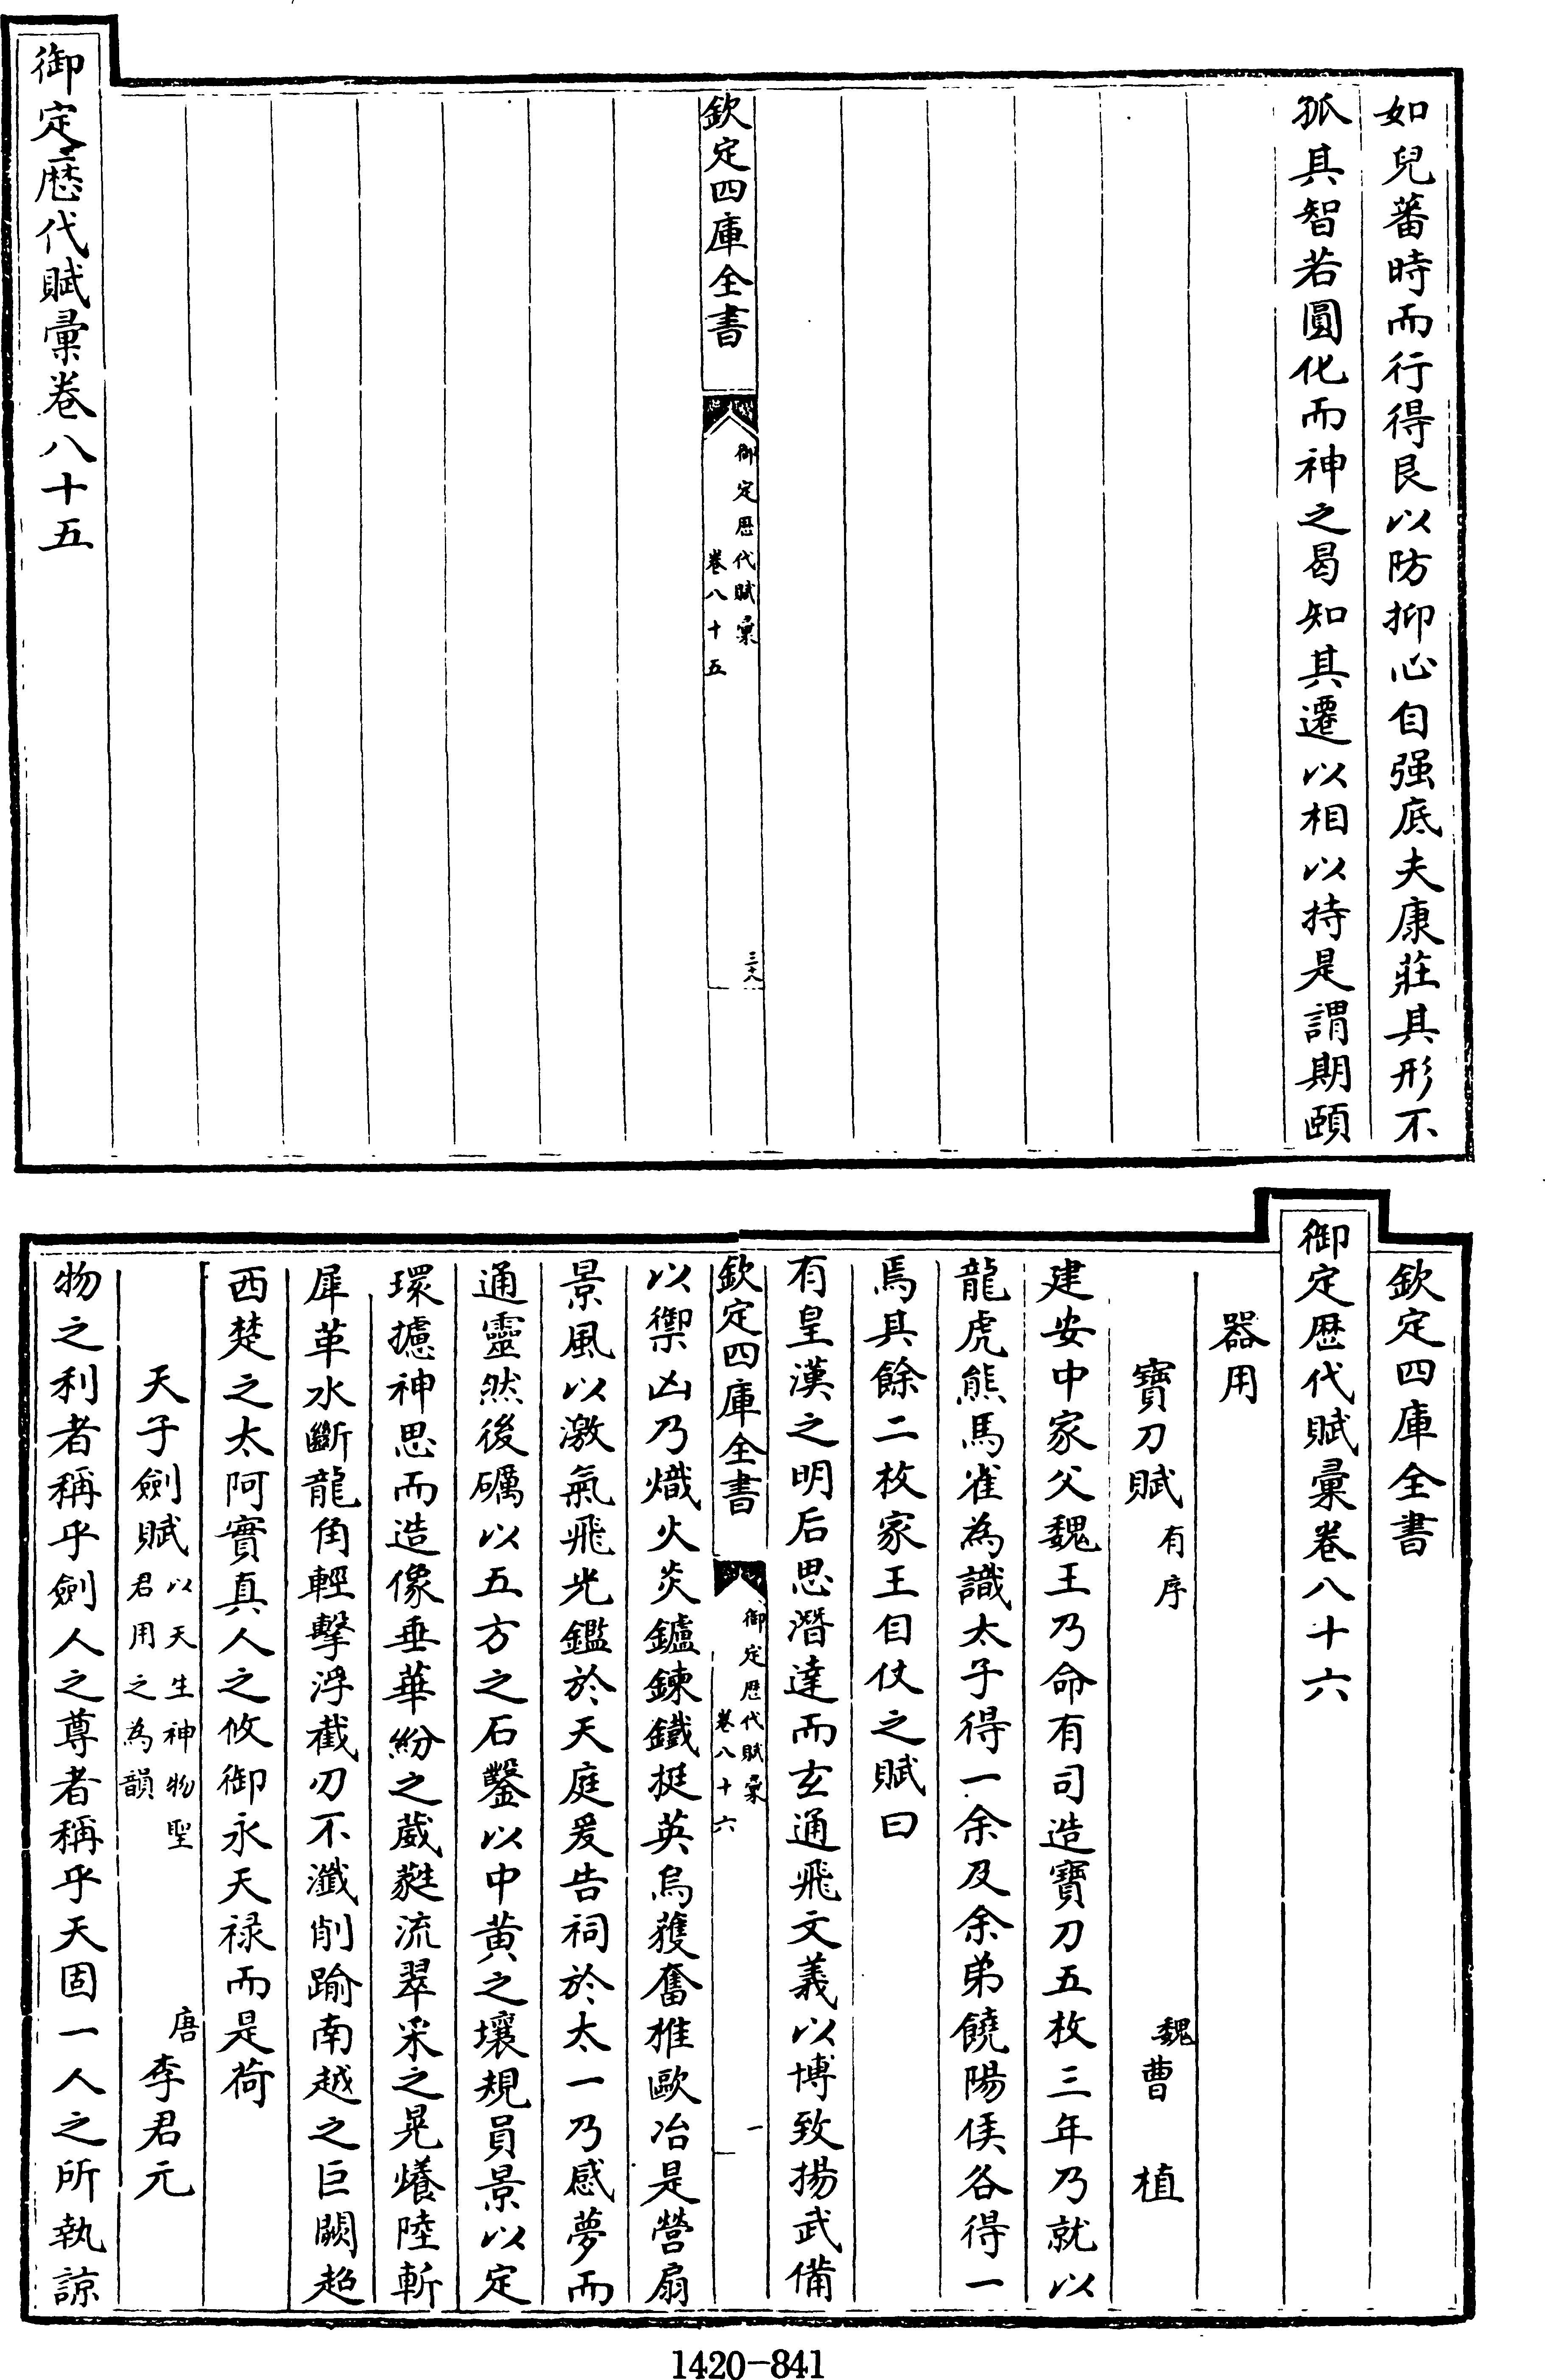 如兒蕃時而行得艮以防抑心自强底夫康莊具形不
孤具智若圓化而神之曷知其遷以相以持是謂期頤
欽定四庫全書
御定歴代賦彙
卷八十五
三十八
御定歴代賦彙卷八十五
欽定四庫全書
御定歴代賦彙卷八十六
器用
寶刀賦 有序 魏曹 植
建安中家父魏王乃命有司造寶刀五枚三年乃就以
龍虎熊馬雀為識太子得一余及余弟饒陽侯各得一
焉其餘二枚家王自仗之賦曰
有皇漢之明后思潛達而玄通飛文義以博致揚武備
欽定四庫全書
御定歴代賦彙
卷八十六
一
以禦凶乃熾火炎鑪鍊鐵挺英烏獲奮椎歐冶是營扇
景風以激氣飛光鑑於天庭爰告祠於太一乃感夢而
通靈然後礪以五方之石鑿以中黄之壤規員景以定
環攄神思而造像垂華紛之葳蕤流翠采之晃爌陸斬
犀革水斷龍角輕擊浮截刃不瀸削踰南越之巨闕超
西楚之太阿實真人之攸御永天禄而是荷
天子劍賦 以天生神物聖君用之為韻 唐李君元
物之利者稱乎劍人之尊者稱乎天固一人之所執諒
1420-841